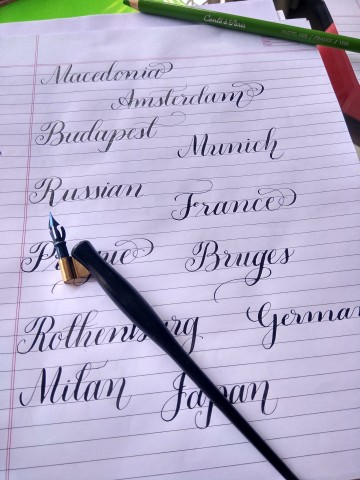 Conté à Paris
Macedonia
Amsterdam
Budapest
Munich
Russian
France
Bruges
Rothenburg
German
Milan
Japan